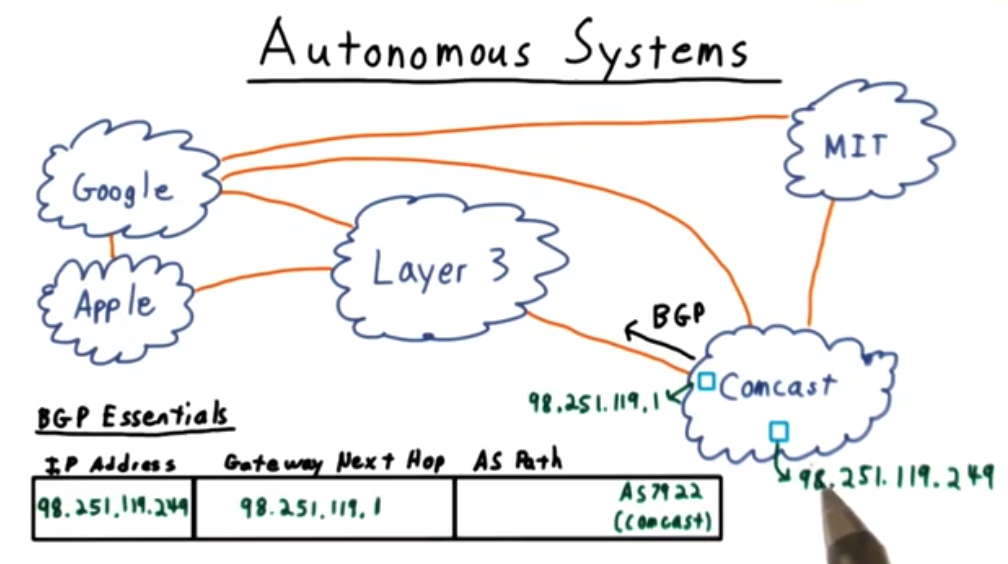 Autonomous Systems
MIT
Google
Layer 3
Apple
BGP
Comcast
98.251.119.1
BGP Essentials
IP Address Gateway Next Hop AS Path
98.251.119.249
98.251.119.249 98.251.119.1 AS7922
(Comcast)